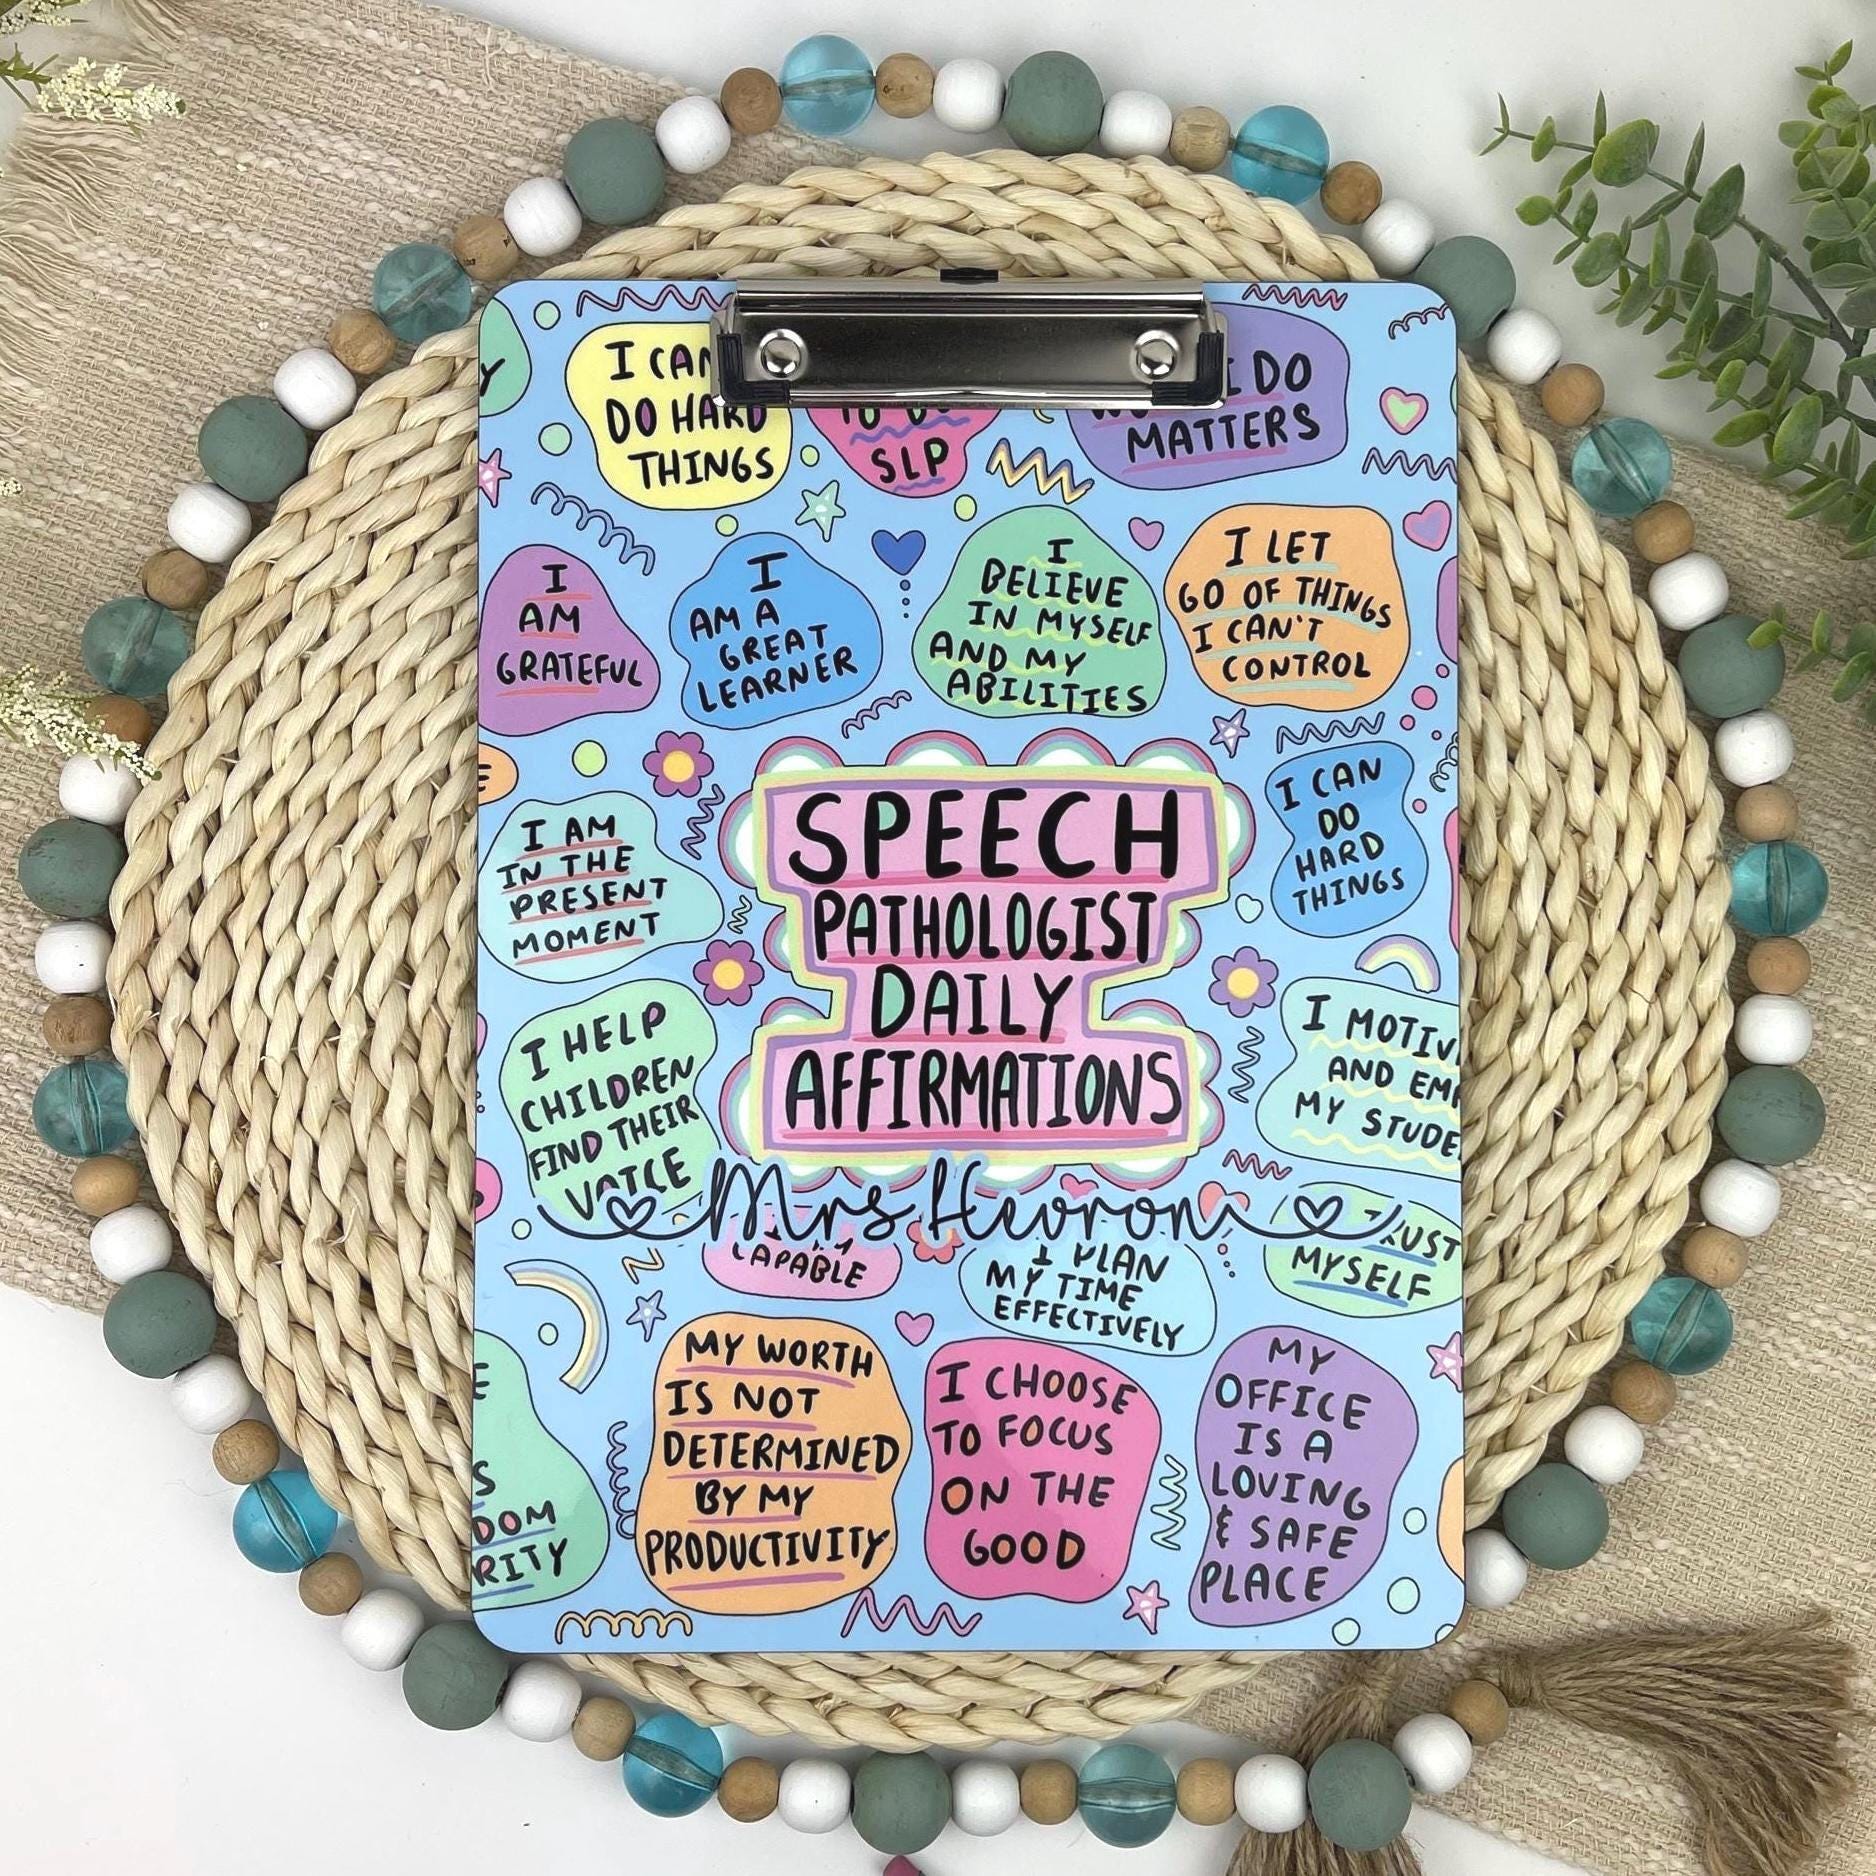 I CAN
DO HARD
THINGS
TO
SLP
I DO
MATTERS
I
AM
GRATEFUL
I
AM A
GREAT
LEARNER
I
BELIEVE
IN MYSELF
AND MY
ABILITIES
I LET
GO OF THINGS
I CAN'T
CONTROL
I AM
IN THE
PRESENT
MOMENT
SPEECH
PATHOLOGIST
DAILY
AFFIRMATIONS
I CAN
DO
HARD
THINGS
I HELP
CHILDREN
FIND THEIR
VOICE
I MOTIV
AND EMP
MY STUDE
Mrs Hevron
CAPABLE
I PLAN
MY TIME
EFFECTIVELY
TRUST
MYSELF
E
S
DOM
RITY
MY WORTH
IS NOT
DETERMINED
BY MY
PRODUCTIVITY
I CHOOSE
TO FOCUS
ON THE
GOOD
MY
OFFICE
IS A
LOVING
& SAFE
PLACE